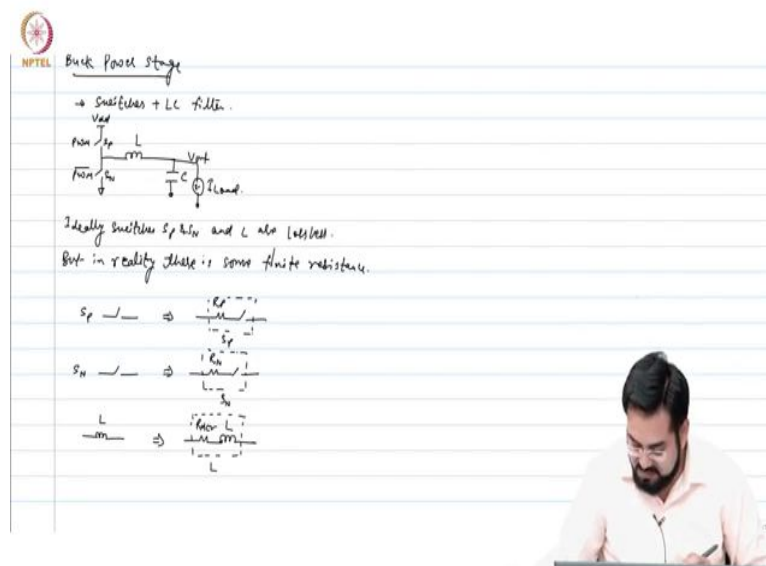 NPTEL
Buck Power Stage
→ Switches + LC filter.
Vdd
PWM Sp L Vout
PWM SN C ILoad.
Ideally switches Sp & SN and L are lossless.
But in reality there is some finite resistance.
Sp ⇒ Rp
Sp
SN ⇒ RN
SN
L ⇒ RDCR L
L